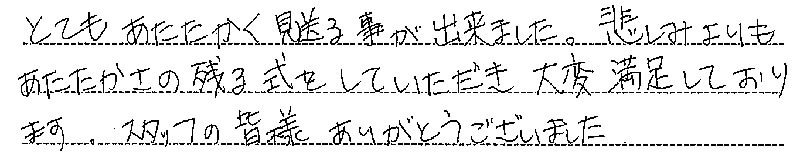 とてもあたたかく見送る事が出来ました。悲しみよりも
あたたかさの残る式をしていただき大変満足しており
ます。スタッフの皆様ありがとうございました